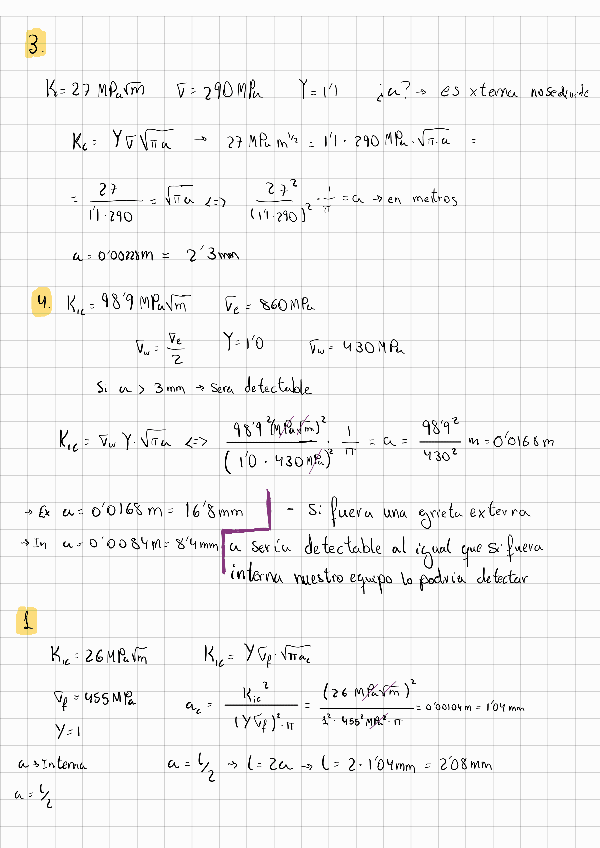 3.
K_c = 27 MPa√m   σ = 290 MPa   Y = 1'1   ¿a? → es xterna no se divide
K_c = Y σ √π a → 27 MPa m^1/2 = 1'1 · 290 MPa · √π · a =
= 27 / 1'1 · 290 = √π a <=> 27² / (1'1 · 290)² · 1/π = a → en metros
a = 0'00228 m = 2'3 mm
4. K_IC = 98'9 MPa√m   σ_e = 860 MPa
σ_w = σ_e / 2   Y = 1'0   σ_w = 430 MPa
Si a > 3 mm → sera detectable
K_IC = σ_w Y · √π a <=> 98'9² (MPa√m)² / (1'0 · 430 MPa)² · 1/π = a = 98'9² / 430² m = 0'0168 m
→ Ex a = 0'0168 m = 16'8 mm - Si fuera una grieta externa
→ In a = 0'0084 m = 8'4 mm a sería detectable al igual que si fuera
interna nuestro equipo lo podría detectar
1
K_IC = 26 MPa√m   K_IC = Y σ_f · √π a_c
σ_f = 455 MPa   a_c = K_ic² / (Y σ_f)² · π = (26 MPa√m)² / 1² · 455² MPa² · π = 0'00104 m = 1'04 mm
Y = 1
a → Interna   a = L/2 → L = 2a → L = 2 · 1'04 mm = 2'08 mm
a = L/2